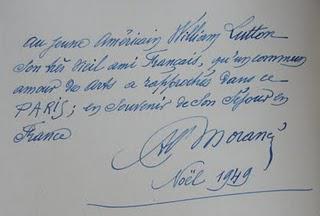 au jeune Américain William Lutton
son très vieil ami Français, qu'un commun
amour des arts a rapprochés dans ce
PARIS; en souvenir de son séjour en
France
Morancé
Noël 1949